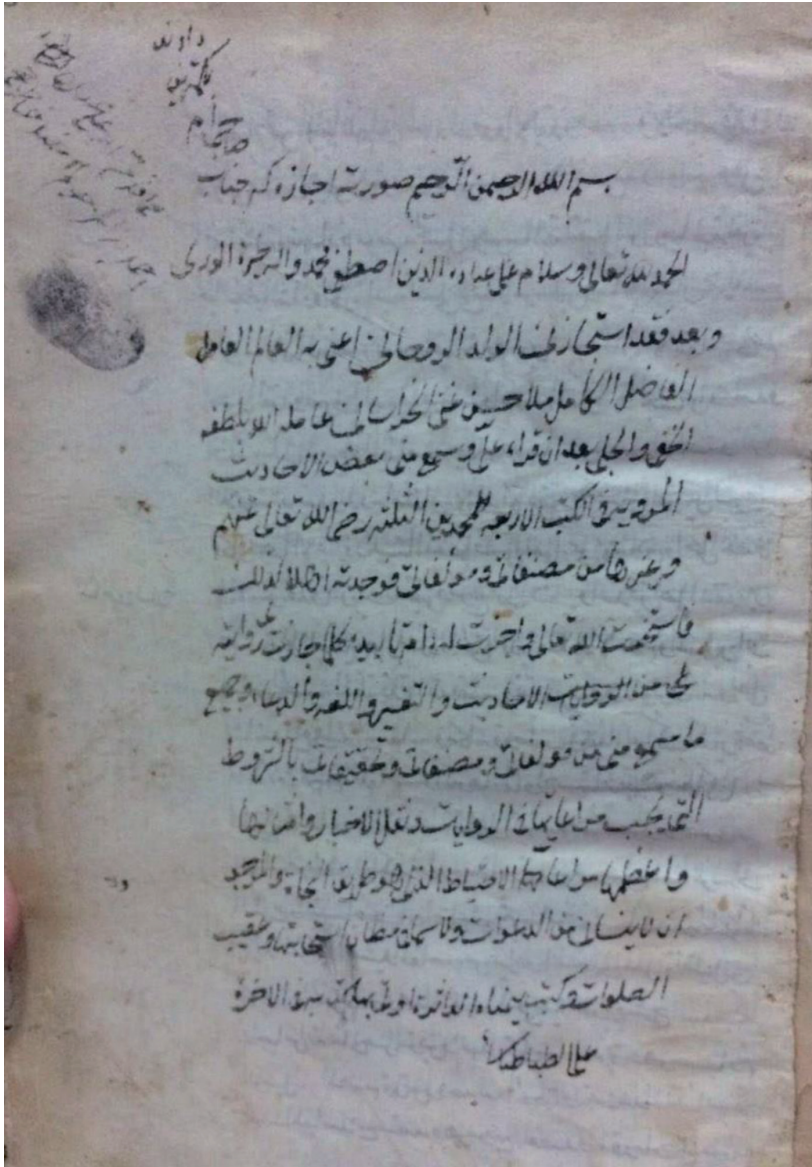 بسم الله الرحمن الرحیم صورت اجازه که جناب
الحمد لله تعالی وسلام علی عباده الذین اصطفی محمد واله خیرة الوری
وبعد فقد استجاز منی الولد الروحانی اعنی به العالم العامل
الفاضل الکامل ملا حسین الخراسانی عامله الله بلطفه
الخفی والجلی بعد ان قراء علی وسمع منی بعض الاحادیث
المرویة فی الکتب الاربعه للمحمدین الثلثه رضی الله تعالی عنهم
وغیرها من مصنفاتی ومؤلفاتی فوجدته اهلا لذلک
فاستخرت الله تعالی واجزت له کلما جازت روایته
عنی من الروایات الاحادیث والتفسیر واللغه والدعاء وجمیع
ما سمع منی من مولفاتی ومصنفاتی وتحقیقاتی بالشروط
التی یجب مراعاتها فی الروایات ونقل الاخبار وامثالها
واعظمها مراعاة الاحتیاط الذی هو طریق النجاة والمرجو
ان لا ینسانی من الدعوات ولا سیما فی مظان استجابتها وعقیب
الصلوات وکتب بیمناه الداثرة اوتی بها کتابه فی الاخرة
علی الطباطبائی